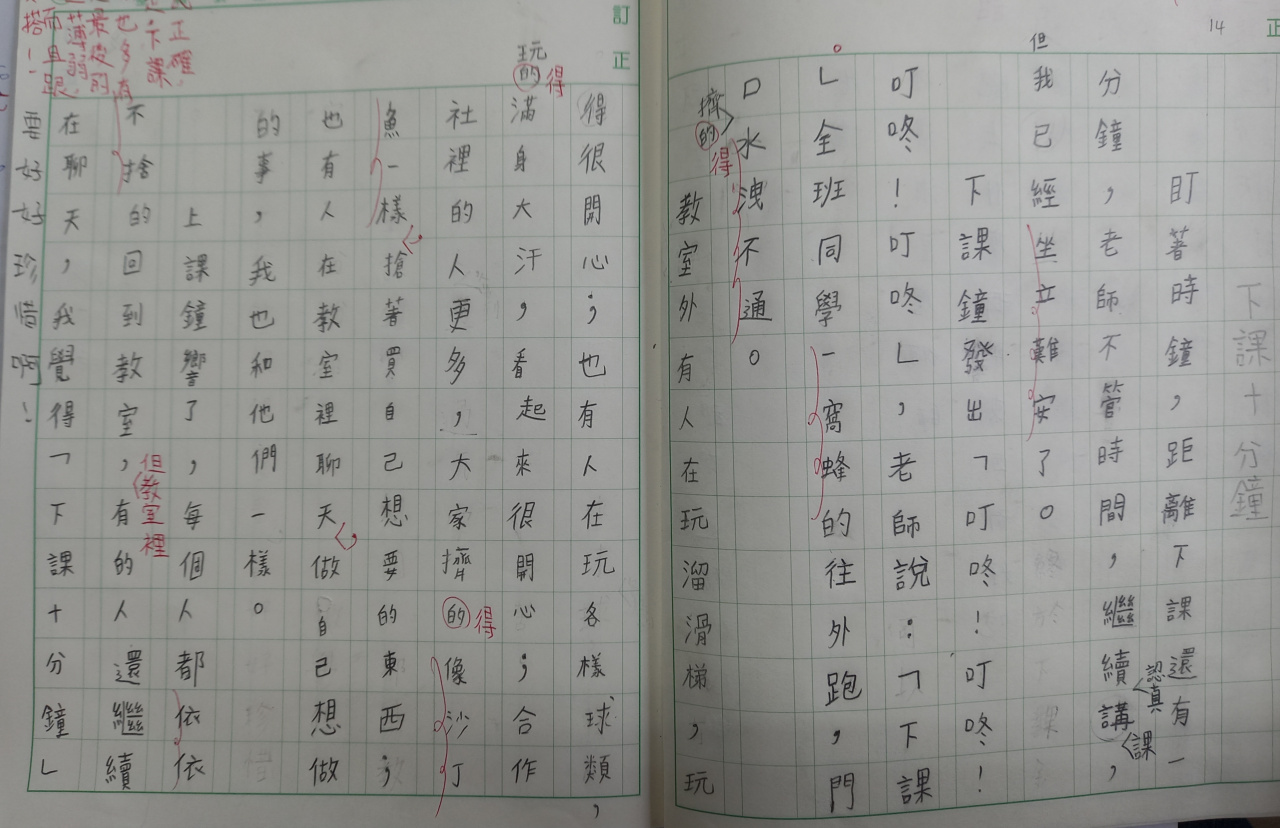 14
下課十分鐘
盯著時鐘,距離下課還有一
分鐘,老師不管時間,繼續認真講課,
但我已經坐立難安了。
下課鐘發出「叮咚!叮咚!
叮咚!叮咚」,老師說:「下課!
」全班同學一窩蜂的往外跑,門
口水洩不通。
擠的得
教室外有人在玩溜滑梯,玩
訂正
玩的得
得很開心;也有人在玩各樣球類,
滿身大汗,看起來很開心;合作
社裡的人更多,大家擠的得像沙丁
魚一樣,搶著買自己想要的東西;
也有人在教室裡聊天,做自己想做
的事,我也和他們一樣。
上課鐘響了,每個人都依依
不捨的回到教室,但教室裡有的人還繼續
在聊天,我覺得「下課十分鐘」
要好好珍惜啊!